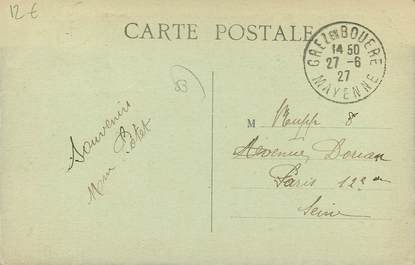 12 €
CARTE POSTALE
GREZ EN BOUERE
14 50
27 - 6
27
MAYENNE
53
Souvenirs
Mme Potet
M Rupp 8
Avenue Dorian
Paris 12e
Seine